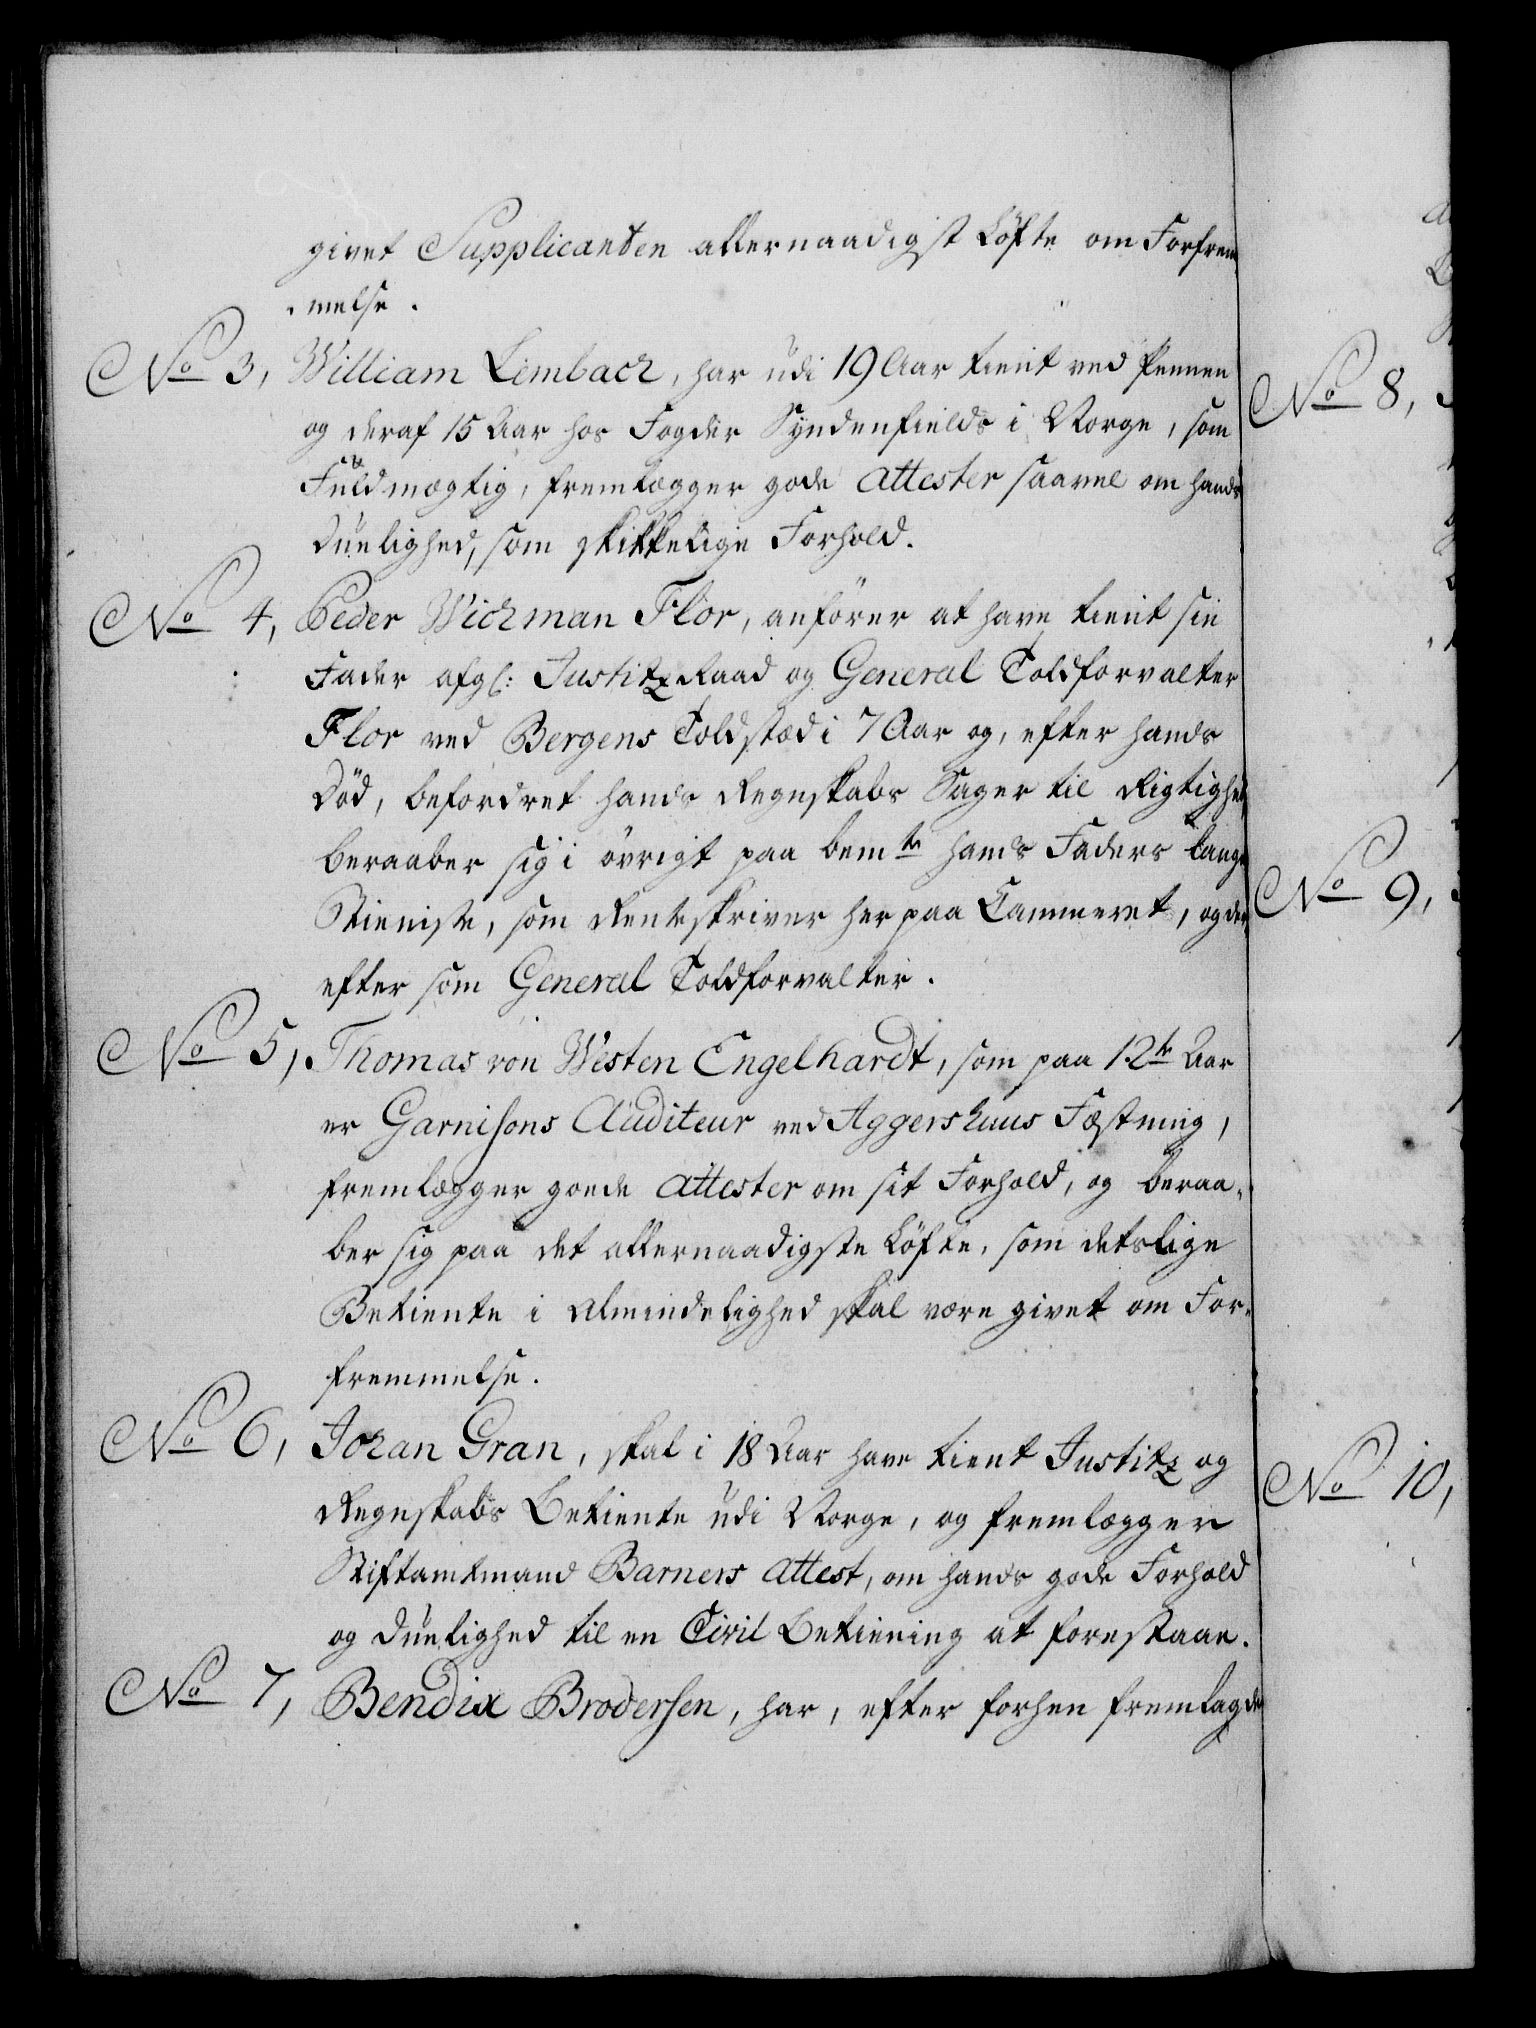 givet Supplicanten allernaadigst Löfte om Forfrem
melse.
No 3, William Limbach, har udi 19 Aar tient ved Pennen
og deraf 15 Aar hos Fogder Syndenfields i Norge, som
Fuldmægtig, fremlægger gode Attester saavel om hands
Duelighed, som skikkelige Forhold.
No 4, Peder Wichman Flor, anfører at have tient sin
Fader afgl: Justitz Raad og General Toldforvalter
Flor ved Bergens Toldstæd i 7 Aar og, efter hands
Död, befordret hands Regnskabs Sager til Rigtighed,
beraaber sig i övrigt paa bemte hands Faders lange
Tieniste, som Renteskriver her paa Cammeret, og der
efter som General Toldforvalter.
No 5, Thomas von Westen Engelhardt, som paa 12te Aar
er Garnisons Auditeur ved Aggershuus Fæstning,
fremlægger goede Attester om sit Forhold, og beraa-
ber sig paa det allernaadigste Löfte, som detslige
Betiente i Almindelighed skal være givet om For-
fremmelse.
No 6, Johan Gran, skal i 18 Aar have tient Justitz og
Regnskabs Betiente udi Norge, og fremlægger
Stiftamtmand Barners Attest, om hands gode Forhold
og Duelighed til en Civil Betiening at forestaae.
No 7, Bendix Brodersen, har, efter forhen fremlagde
No 8,
No 9,
No 10,